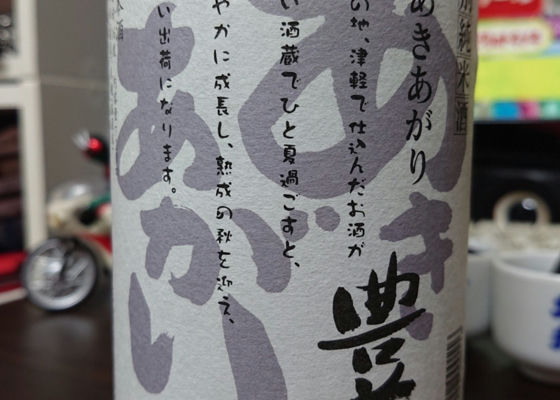 別純米酒
あきあがり
の地、津軽で仕込んだお酒が
い酒蔵でひと夏過ごすと、
やかに成長し、熟成の秋を迎え、
い出荷になります。
米酒
豊
あき
あがり